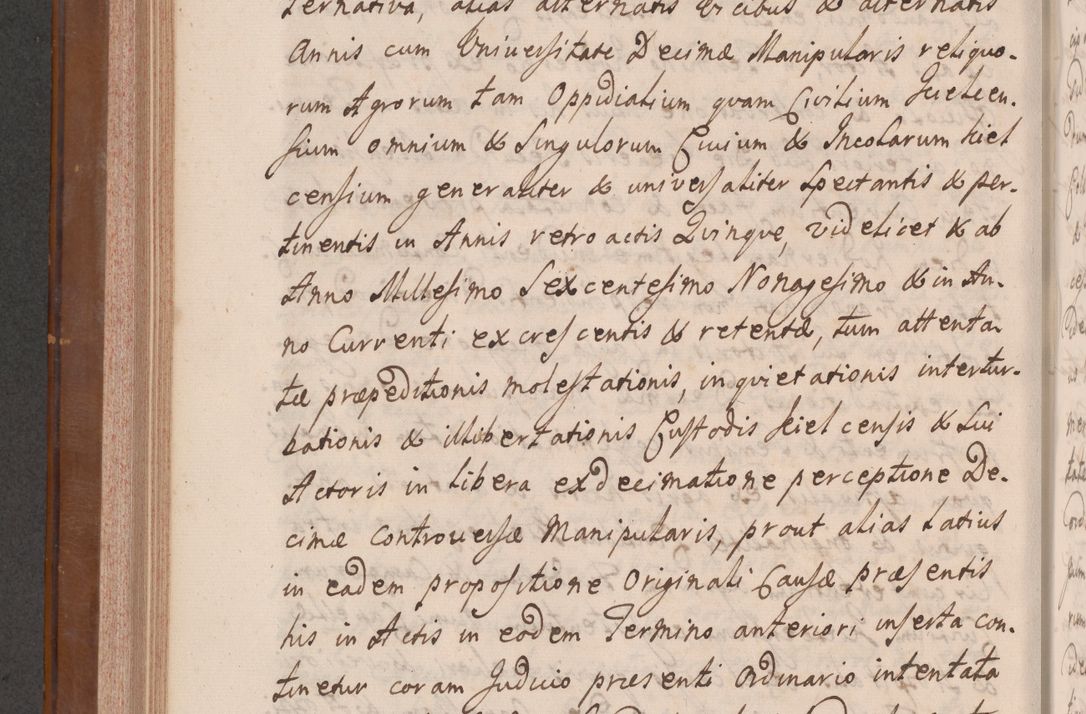 ternativa, alias alternatis Vicibus & alternatis
Annis cum Universitate Decimæ Manipularis reliquo-
rum Agrorum tam Oppidalium quam Civilium Kielcen-
sium omnium & Singulorum Civium & Incolarum Kiel
censium generaliter & universaliter Spectantis & per-
tinentis in Annis retro actis Quinque, videlicet & ab
Anno Millesimo Sexcentesimo Nonagesimo & in An-
no Currenti excrescentis & retentæ, tum attenta-
tæ præpeditionis molestationis, inquietationis intertur-
bationis & illibertationis Custodis Kielcensis & Sui
Actoris in libera exdecimatione perceptione De-
cimæ controversæ Manipularis, prout alias Latius
in eadem propositione Originali Causæ præsentis
his in Actis in eodem Termino anteriori inserta con-
tinetur coram Judicio præsenti Ordinario intentata